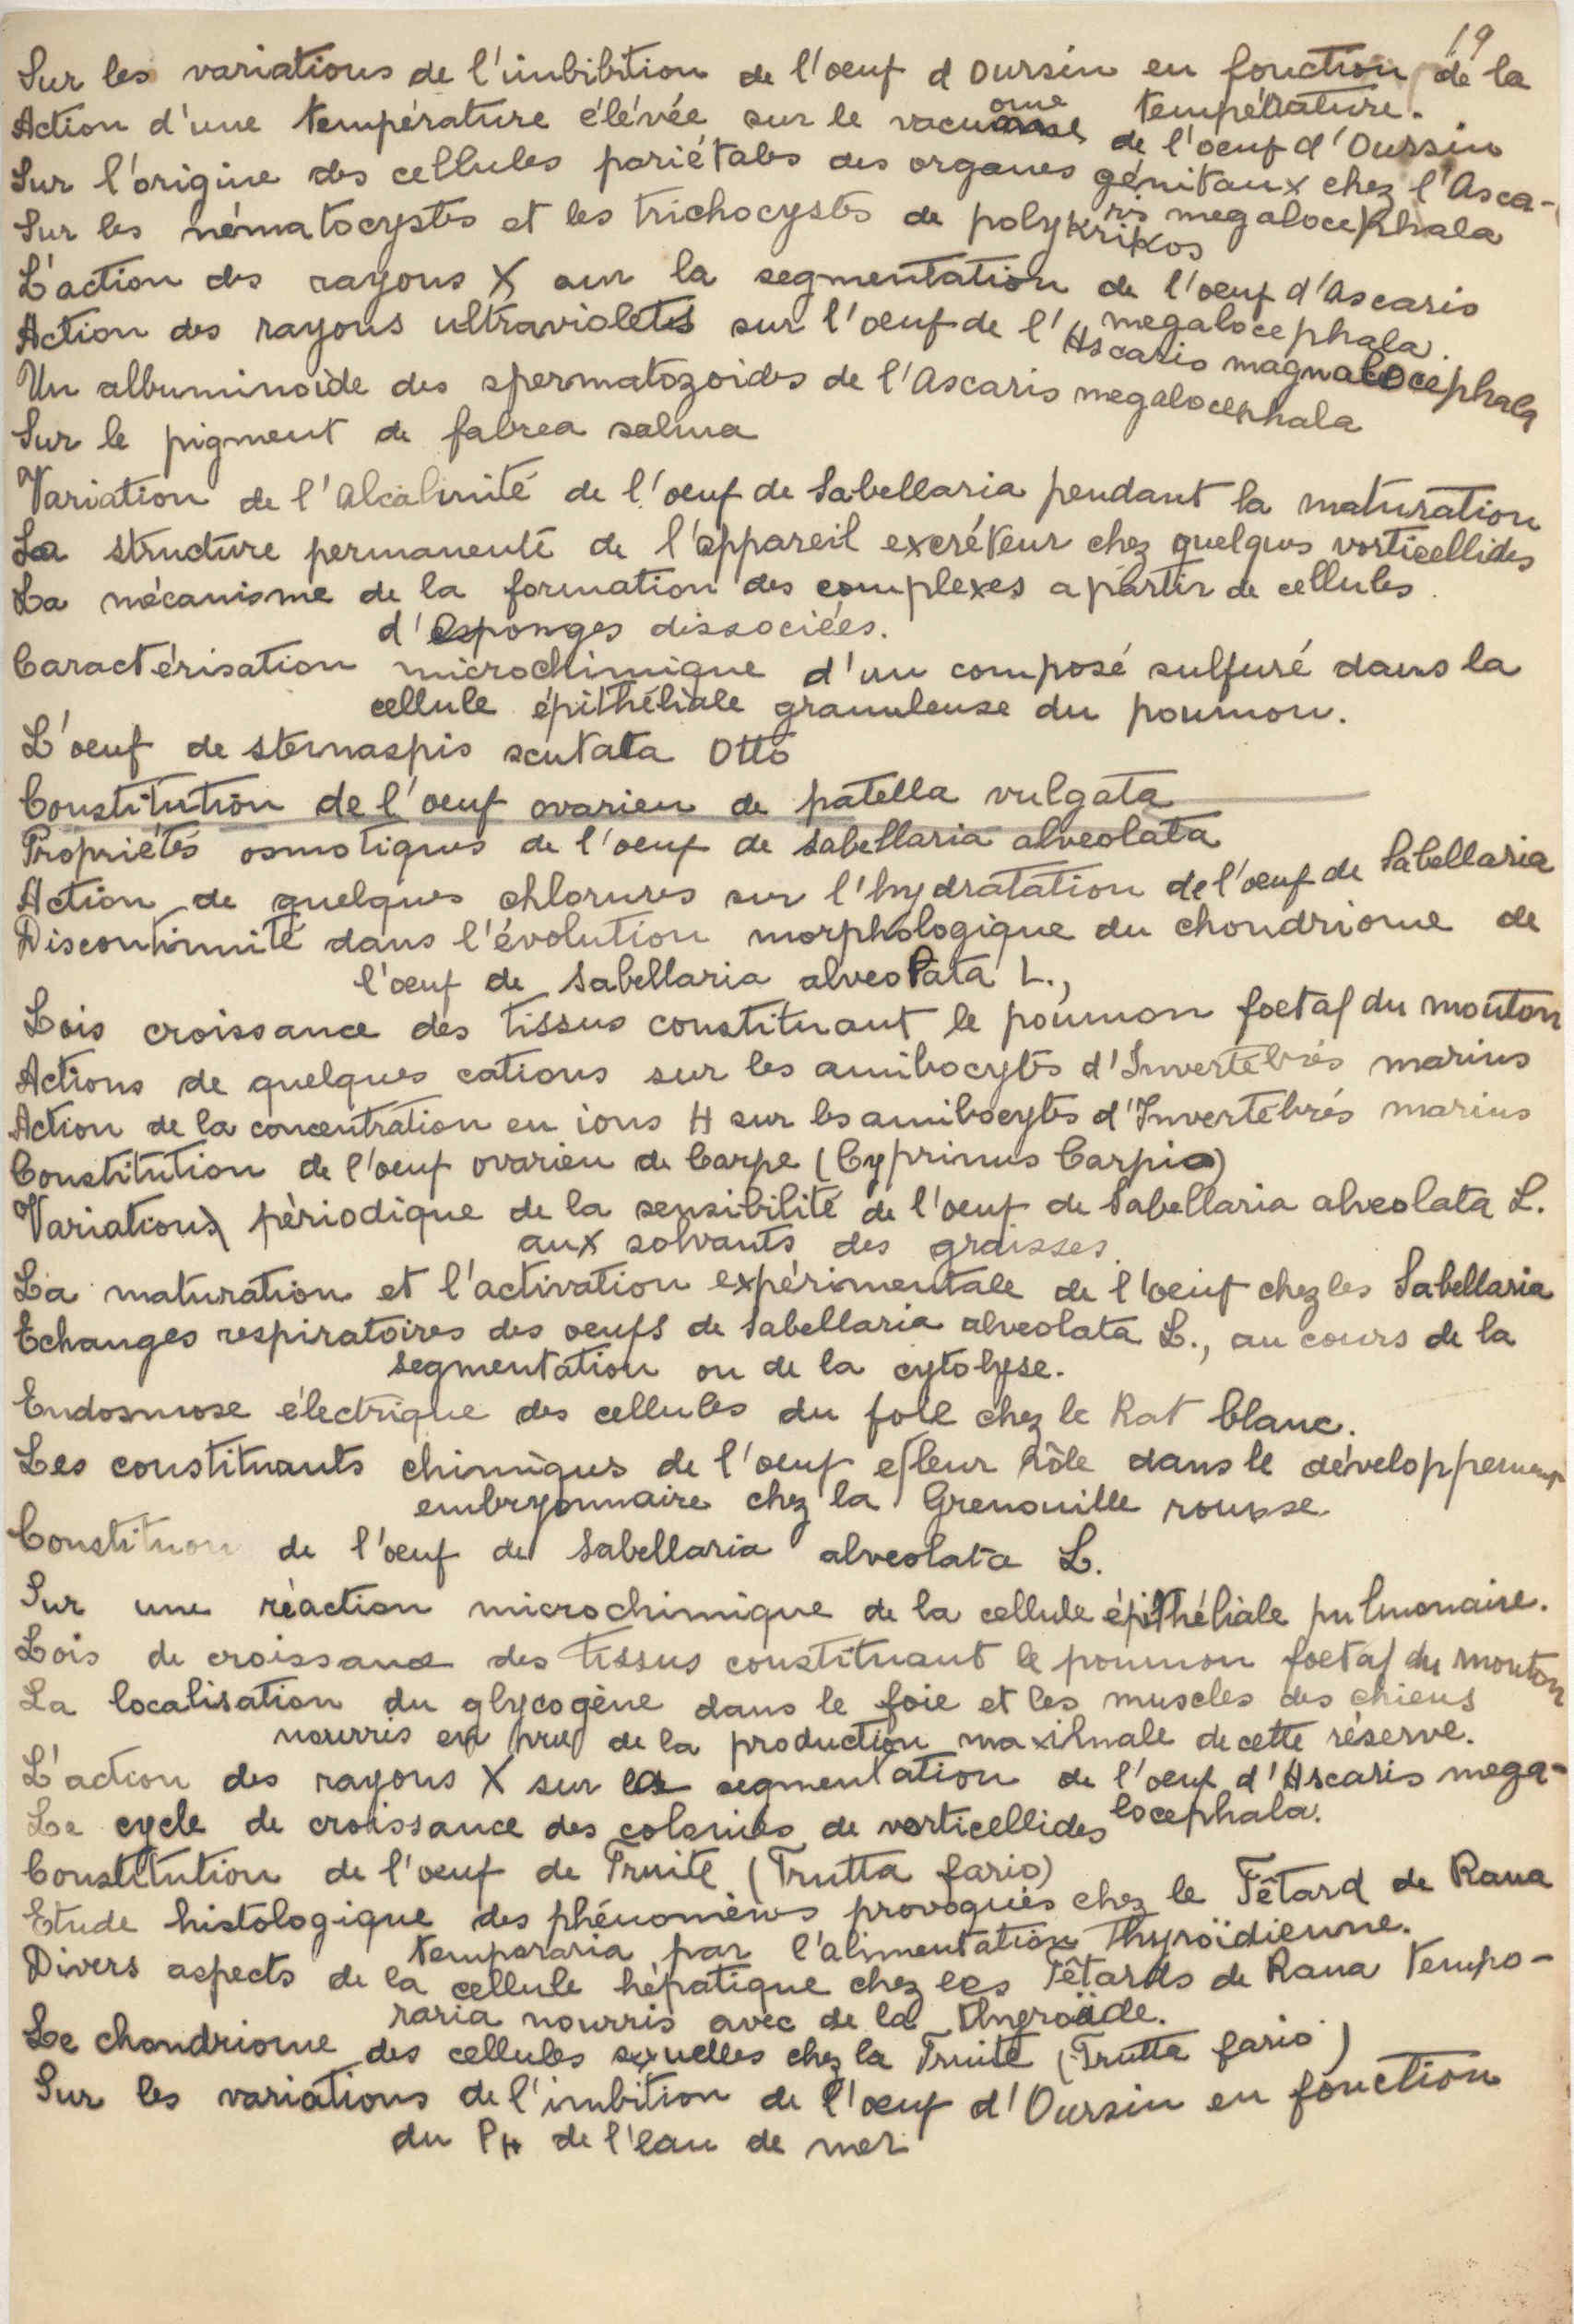 19
Sur les variations de l'imbibition de l'oeuf d Oursin en fonction de la
température.
Action d'une température élévée sur le vacuome de l'oeuf d'Oursin
Sur l'origine des cellules pariétales des organes génitaux chez l'Asca-
ris megalocephala
Sur les nématocystes et les trichocystes de polykrikos
L'action des rayons X sur la segmentation de l'oeuf d'Ascaris
megalocephala.
Action des rayons ultraviolets sur l'oeuf de l'Ascaris magnalocephala
Un albuminoïde des spermatozoïdes de l'Ascaris megalocephala
Sur le pigment de fabrea salina
Variation de l'Alcalinité de l'oeuf de Sabellaria pendant la maturation
La structure permanente de l'appareil excréteur chez quelques vorticellides
La mécanisme de la formation des complexes a partir de cellules
d'esponges dissociées.
Caractérisation microchimique d'un composé sulfuré dans la
cellule épithéliale granuleuse du poumon.
L'oeuf de sternaspis scutata Otto
Constitution de l'oeuf ovarien de patella vulgata
Propriétés osmotiques de l'oeuf de Sabellaria alveolata
Action de quelques chlorures sur l'hydratation de l'oeuf de Sabellaria
Discontinuité dans l'évolution morphologique du chondriome de
l'oeuf de Sabellaria alveolata L.,
Lois croissance des tissus constituant le poumon foetal du mouton
Actions de quelques cations sur les amibocytes d'Invertébrés marins
Action de la concentration en ions H sur les amibocytes d'Invertébrés marins
Constitution de l'oeuf ovarien de Carpe (Cyprinus Carpio)
Variations périodique de la sensibilité de l'oeuf de Sabellaria alveolata L.
aux solvants des graisses.
La maturation et l'activation expérimentale de l'oeuf chez les Sabellaria
Echanges respiratoires des oeufs de Sabellaria alveolata L., au cours de la
segmentation ou de la cytolyse.
Endosmose électrique des cellules du foie chez le Rat blanc.
Les constituants chimiques de l'oeuf et leur rôle dans le développement
embryonnaire chez la Grenouille rousse.
Constitution de l'oeuf de Sabellaria alveolata L.
Sur une réaction microchimique de la cellule épithéliale pulmonaire.
Lois de croissance des tissus constituant le poumon foetal du mouton
La localisation du glycogène dans le foie et les muscles des chiens
nourris en de la production maximale de cette réserve.
L'action des rayons X sur la segmentation de l'oeuf d'Ascaris mega-
locephala.
Le cycle de croissance des colonies de vorticellides
Constitution de l'oeuf de Truite (Trutta fario)
Etude histologique des phénomènes provoqués chez le Têtard de Rana
temporaria par l'alimentation Thyroïdienne.
Divers aspects de la cellule hépatique chez les Têtards de Rana Tempo-
raria nourris avec de la
Le chondriome des cellules sexuelles chez la Truite (Trutta fario)
Sur les variations de l'imbition de l'oeuf d'Oursin en fonction
du PH de l'eau de mer